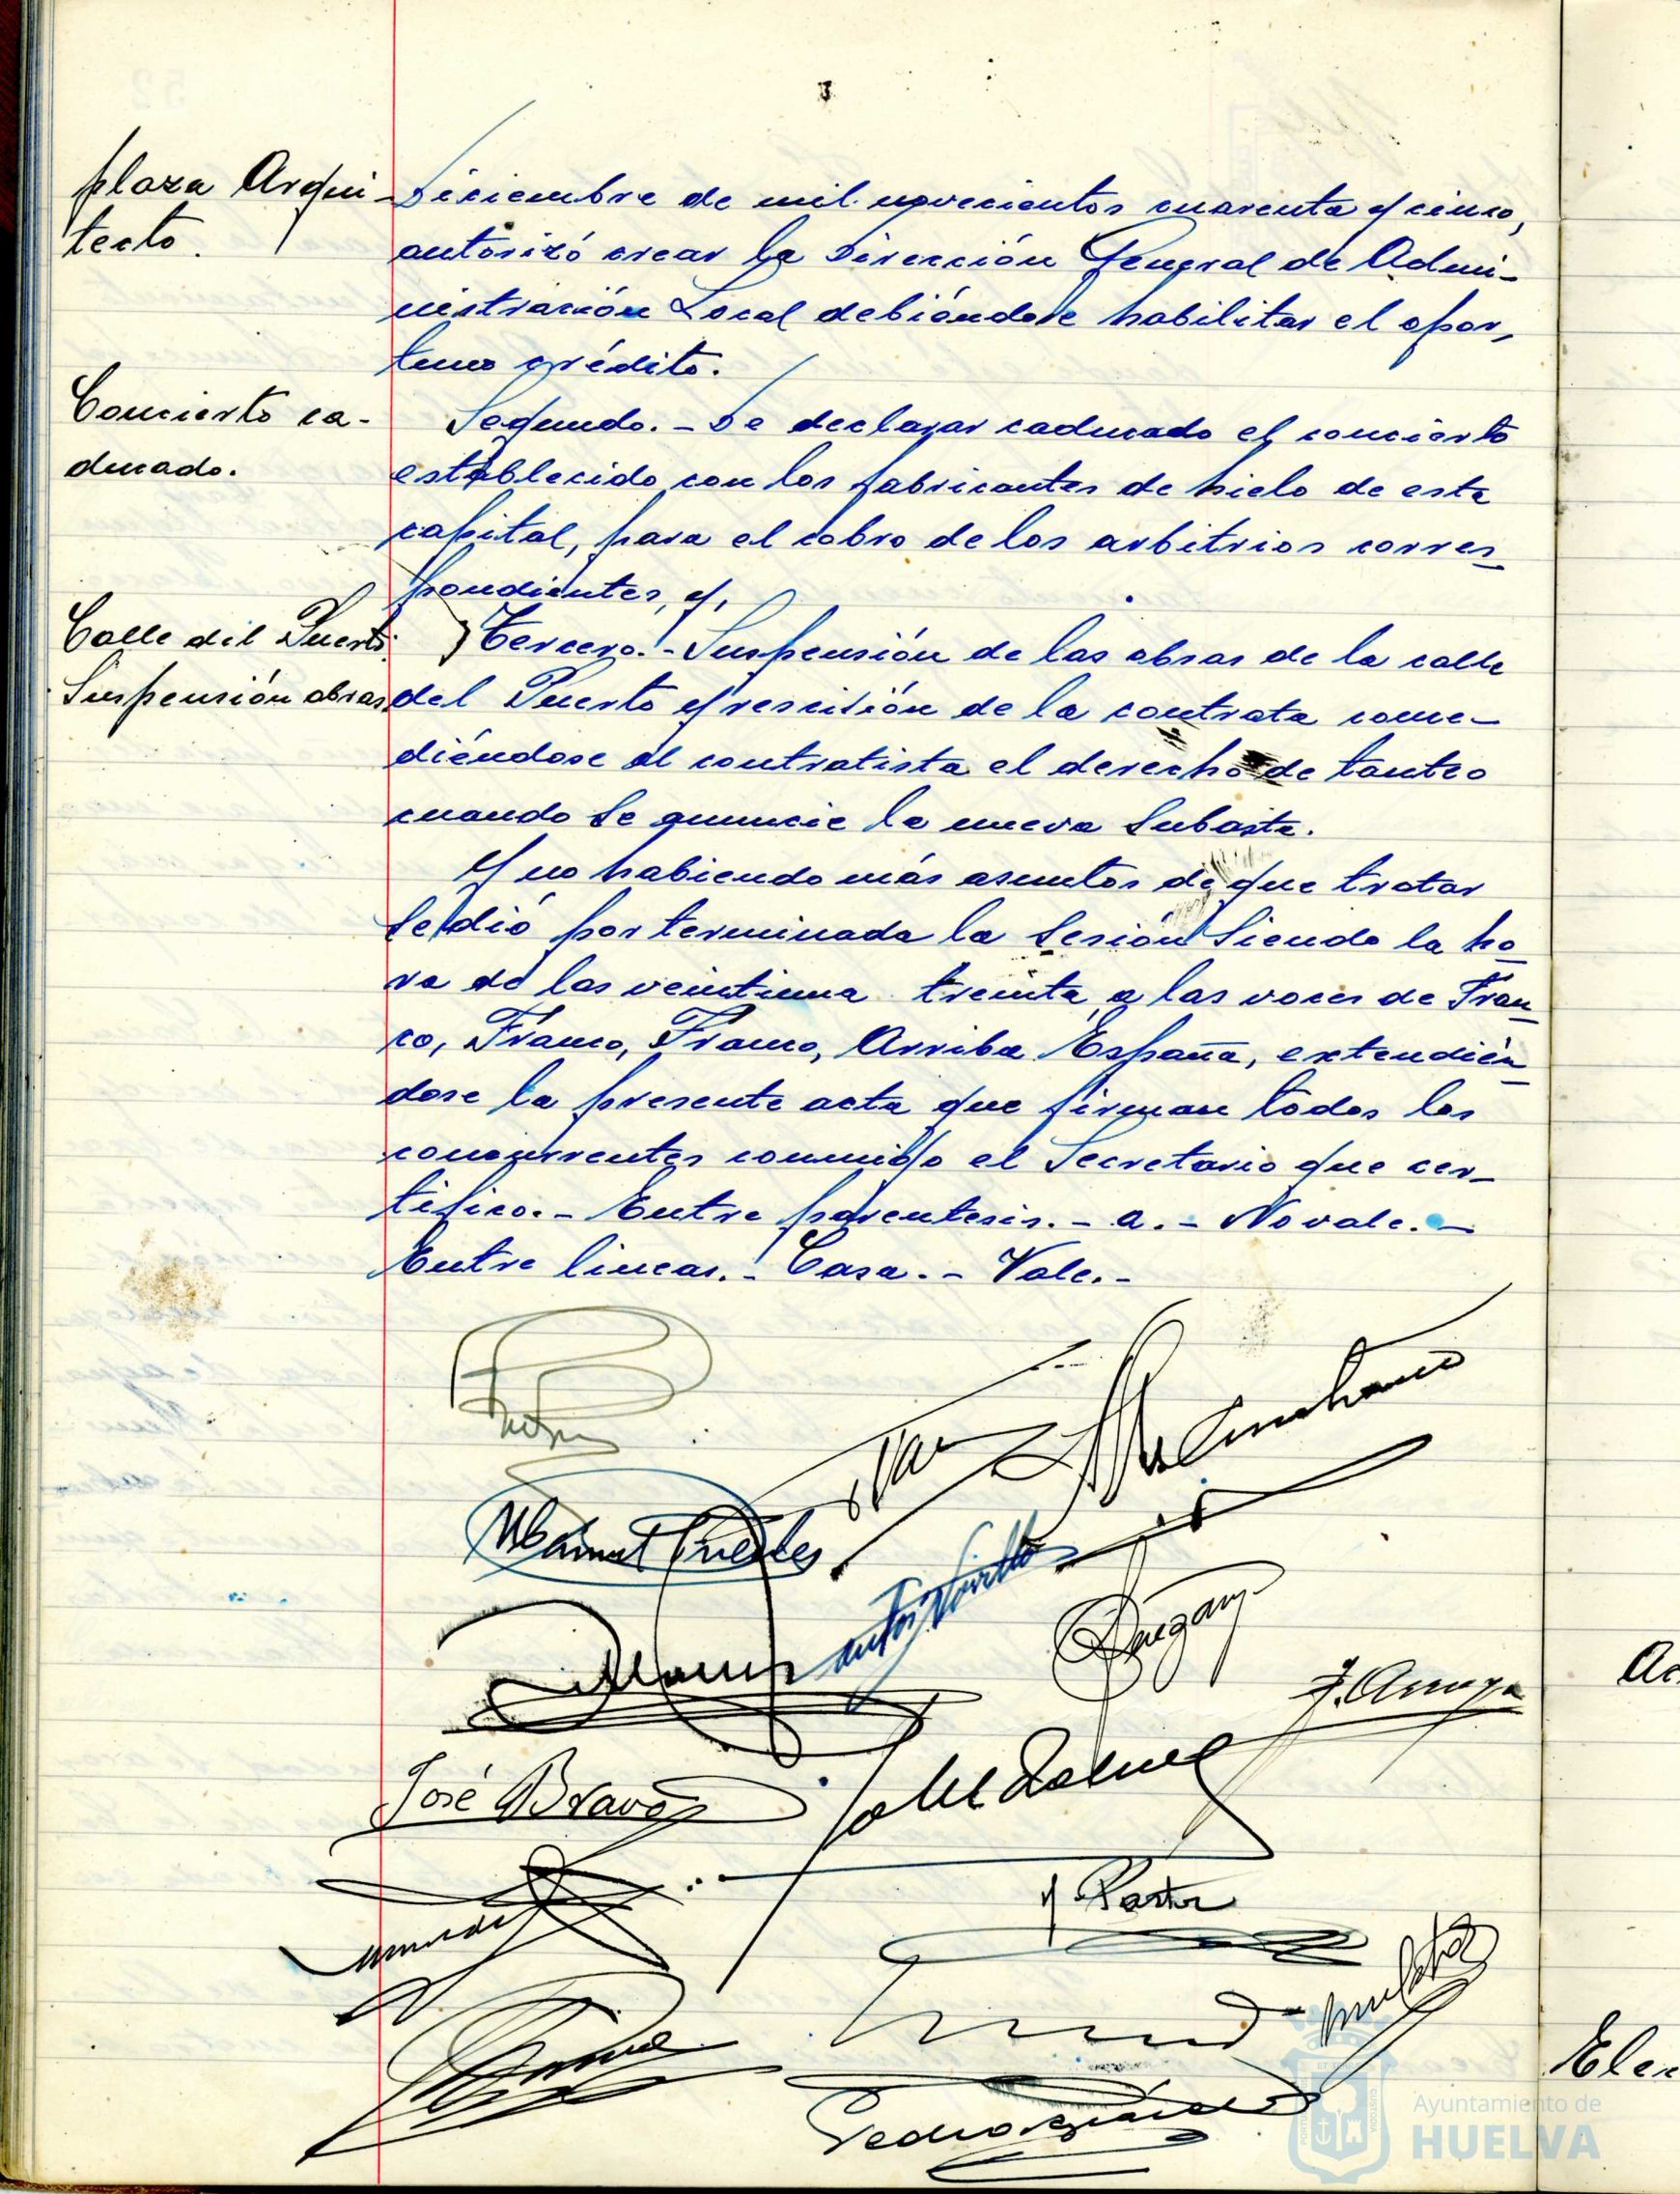 plaza Arqui-
tecto.
Diciembre de mil novecientos cuarenta y cinco,
autorizó crear la Dirección General de Admi-
nistración Local debiéndose habilitar el opor-
tuno crédito.
Concierto ca-
ducado.
Segundo.- De declarar caducado el concierto
establecido con los fabricantes de hielo de esta
capital, para el cobro de los arbitrios corres-
pondientes, y,
Calle del Puerto.
Suspensión obras
Tercero.- Suspensión de las obras de la calle
del Puerto y rescisión de la contrata conce-
diéndose al contratista el derecho de tanteo
cuando se anuncie la nueva subasta.
Y no habiendo más asuntos de que tratar
se dió por terminada la sesión siendo la ho-
ra de las veintiuna treinta, a las voces de Fran-
co, Franco, Franco, Arriba España, extendién-
dose la presente acta que firman todos los
concurrentes conmigo el Secretario que cer-
tifico.- Entre parentesis.- a.- No vale.-
Entre lineas.- Casa.- Vale.-
José Bravo
Ayuntamiento de
HUELVA